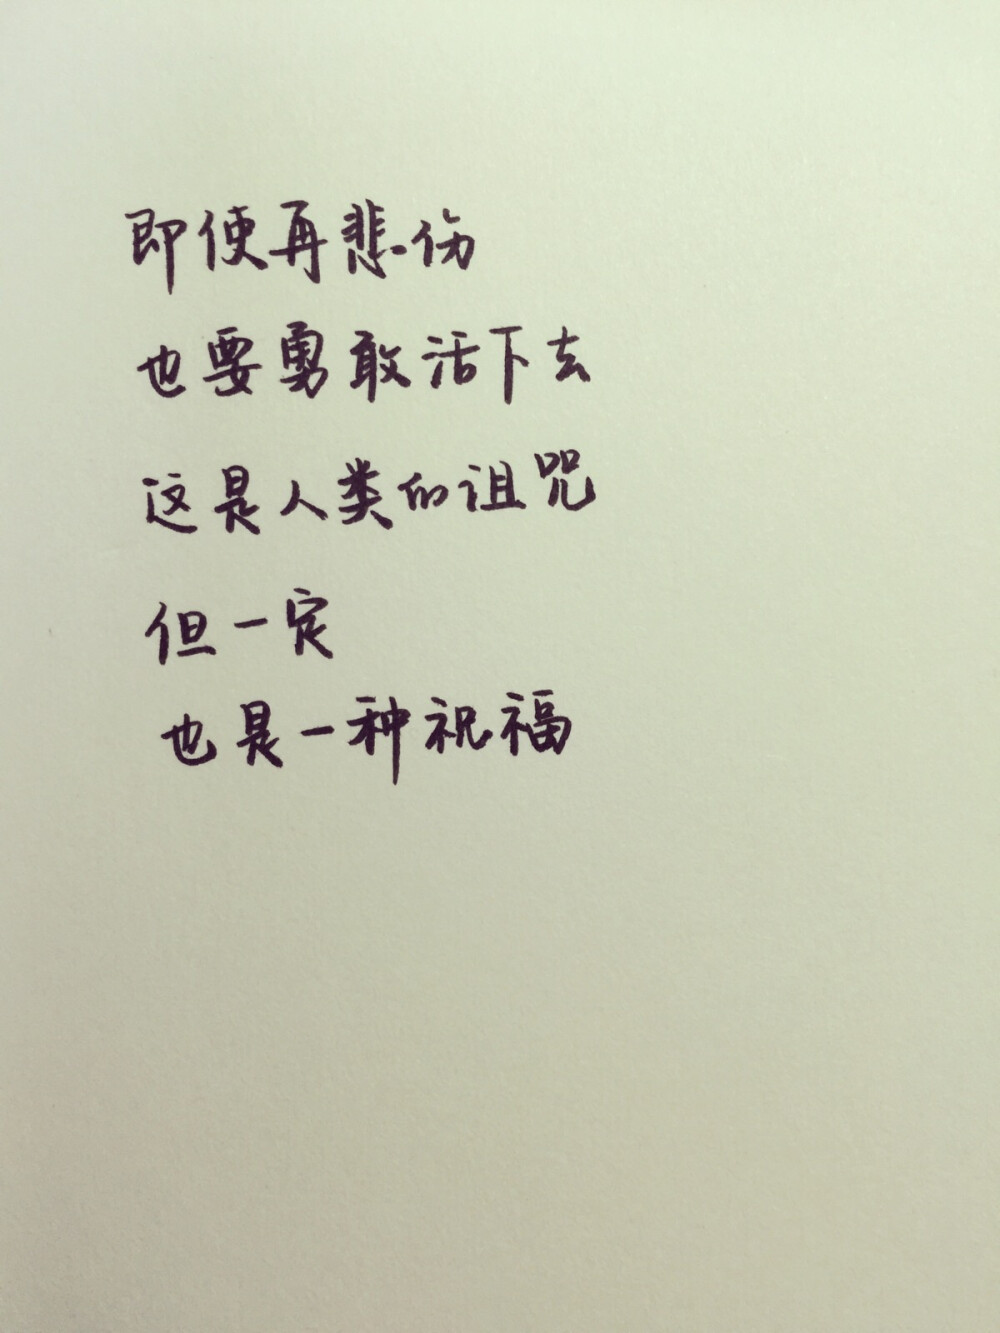 即使再悲伤
也要勇敢活下去
这是人类的诅咒
但一定
也是一种祝福